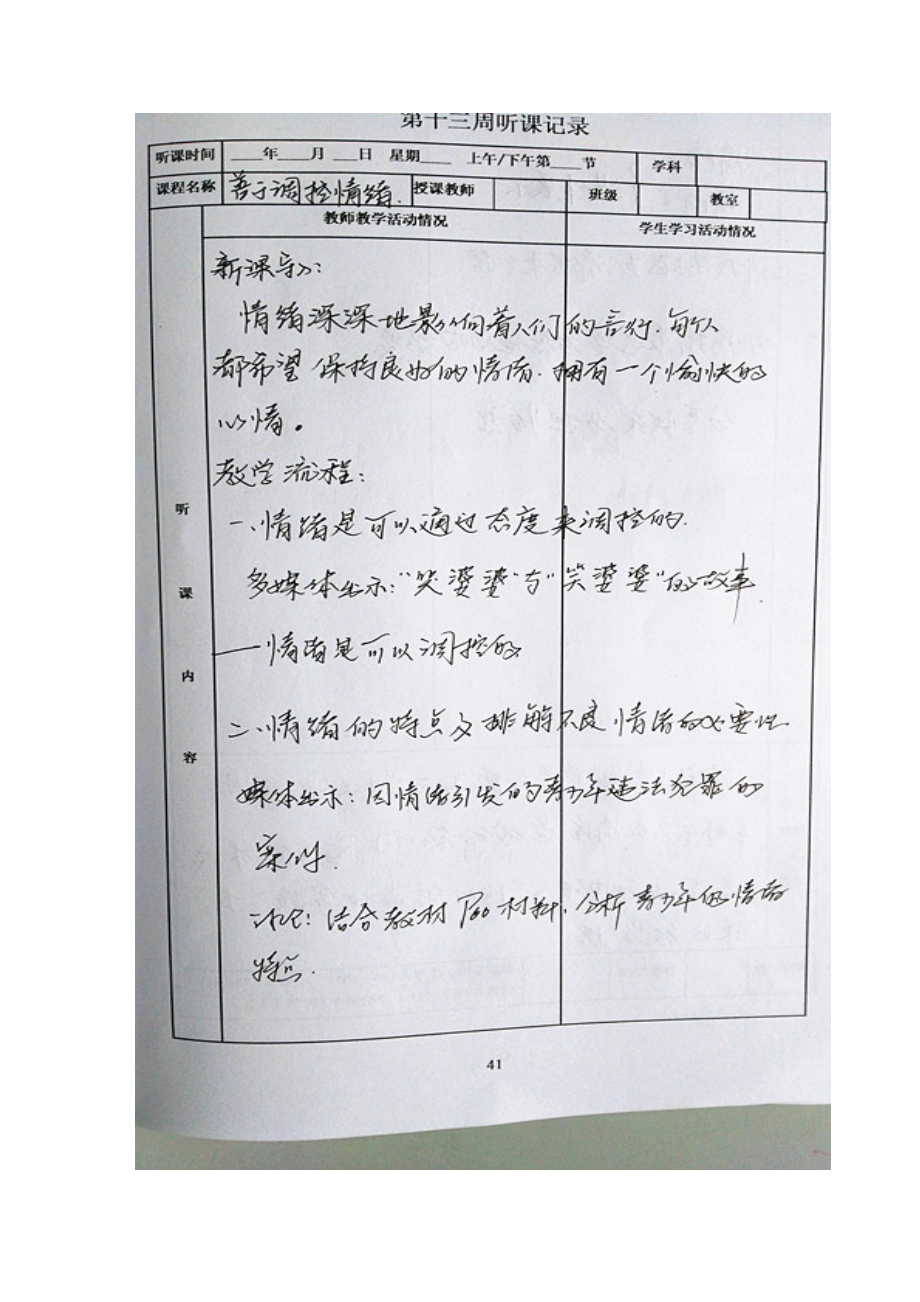 第十三周听课记录
听课时间 ____年____月____日 星期____ 上午/下午第____节 学科
课程名称 善于调控情绪. 授课教师 班级 教室
教师教学活动情况 学生学习活动情况
听课内容
新课导入:
情绪深深地影响着人们的言行.每个人
都希望保持良好的情绪.拥有一个愉快的
心情。
教学流程:
一、情绪是可以通过态度来调控的.
多媒体出示:"哭婆婆"与"笑婆婆"的故事.
——情绪是可以调控的
二、情绪的特点及排解不良情绪的必要性.
媒体出示:因情绪引发的青少年违法犯罪的
案例.
讨论:结合教材P60材料.分析青少年的情绪
特点.
41